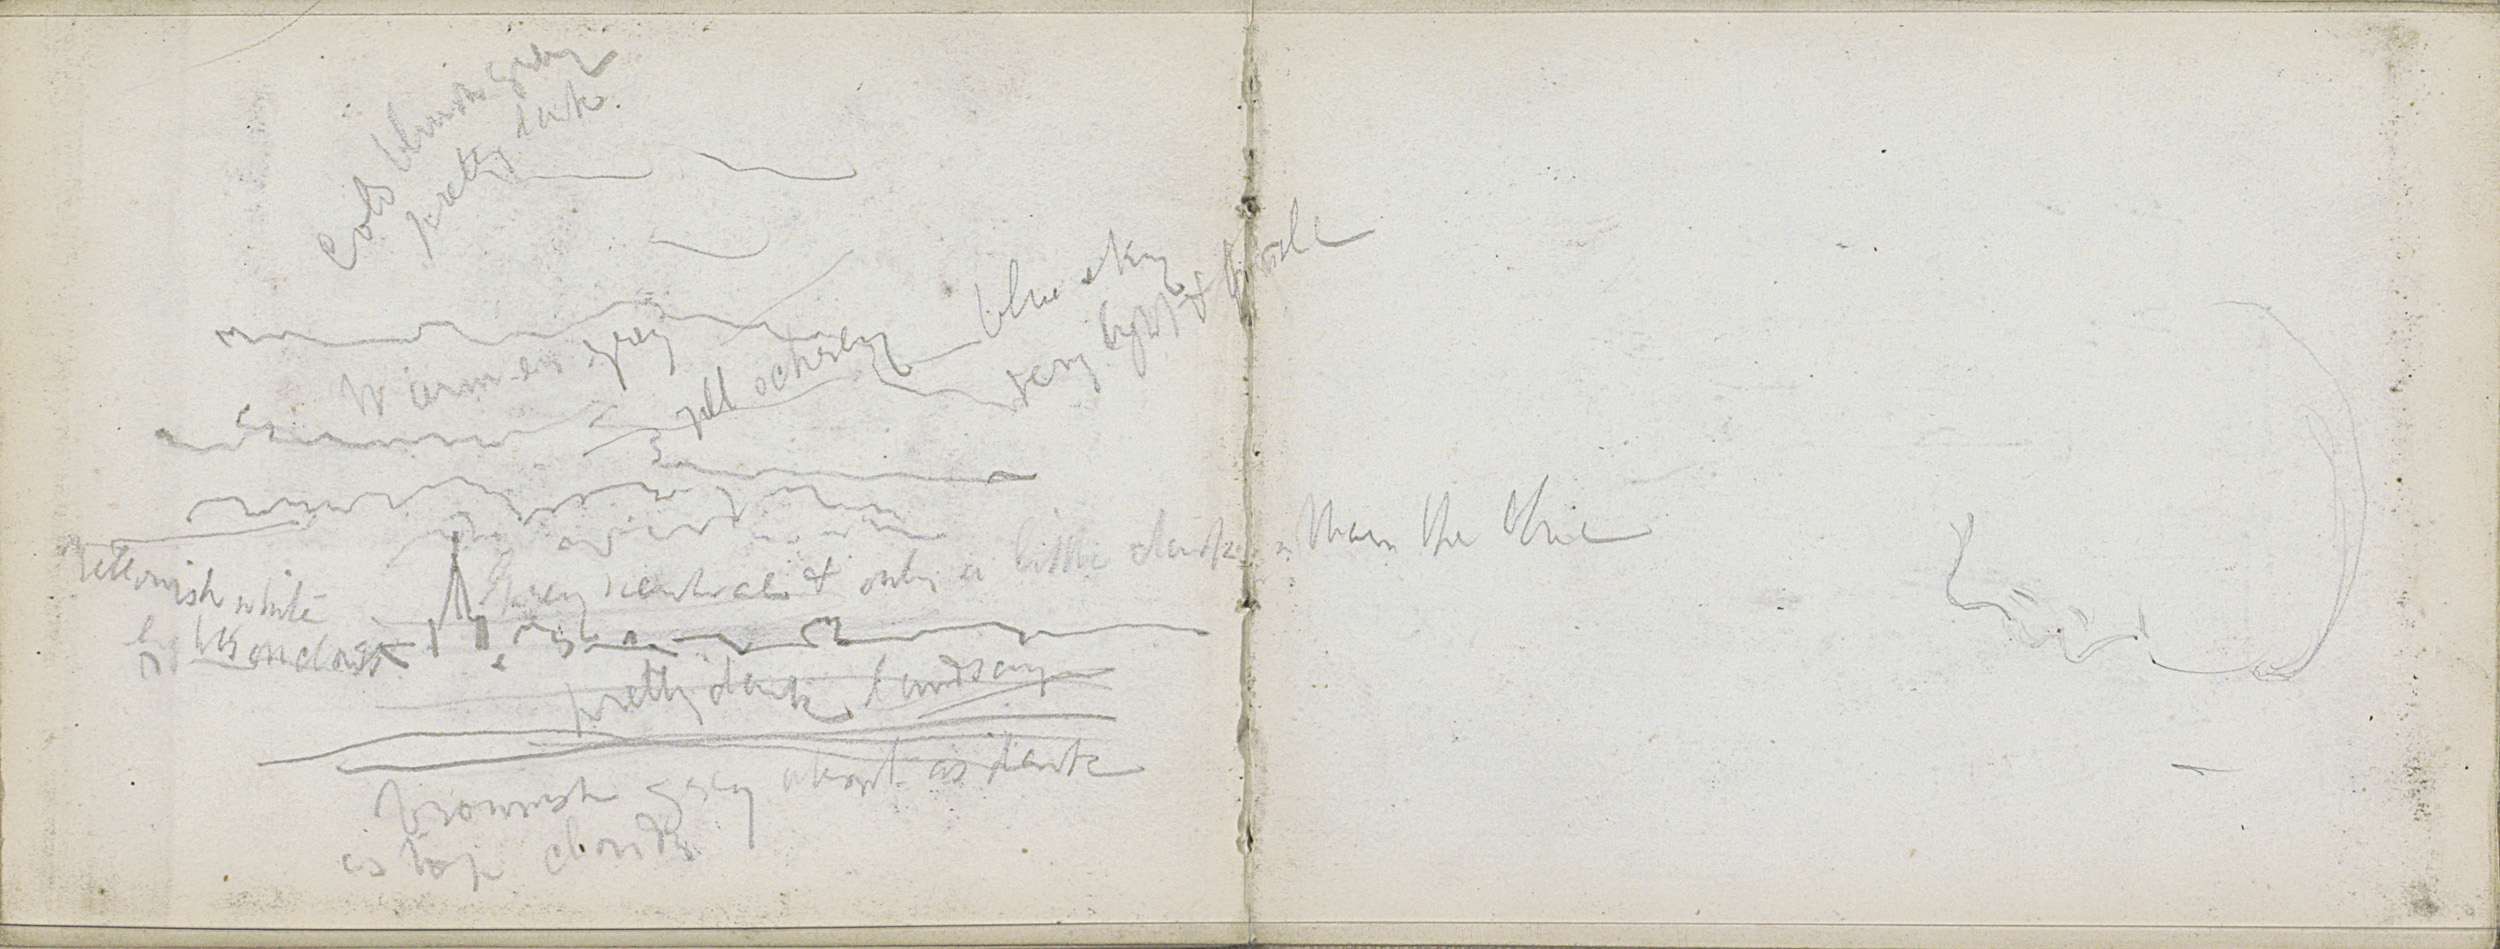 Cold bluish grey
pretty dark.
blue sky
very light &
Warmer grey
yell ochrey
Yellowish white
lights on clouds
Grey neutral & only a little darker than the blue
pretty dark landscape
brownish grey about as dark
as top clouds